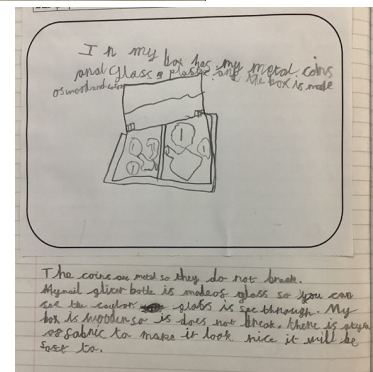 In my box has my metal coins
and glass & plastic and the box is made
of wood and
1
1
The coins are metal so they do not break.
My nail gliter botle is made of glass so you can
see the coulor glass is see through. My
box is wooden so is does not break. there is
of fabric to make it look nice it will be
soft to.